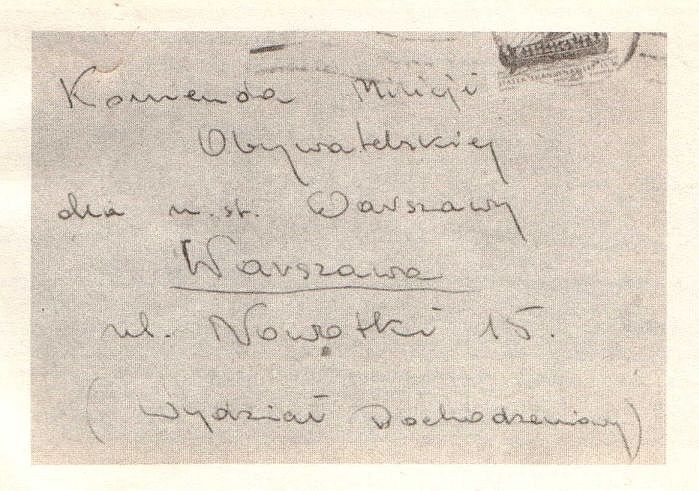 Komenda Milicji
Obywatelskiej
dla m. st. Warszawy
Warszawa
ul. Nowotki 15.
(Wydział Dochodzeniowy)